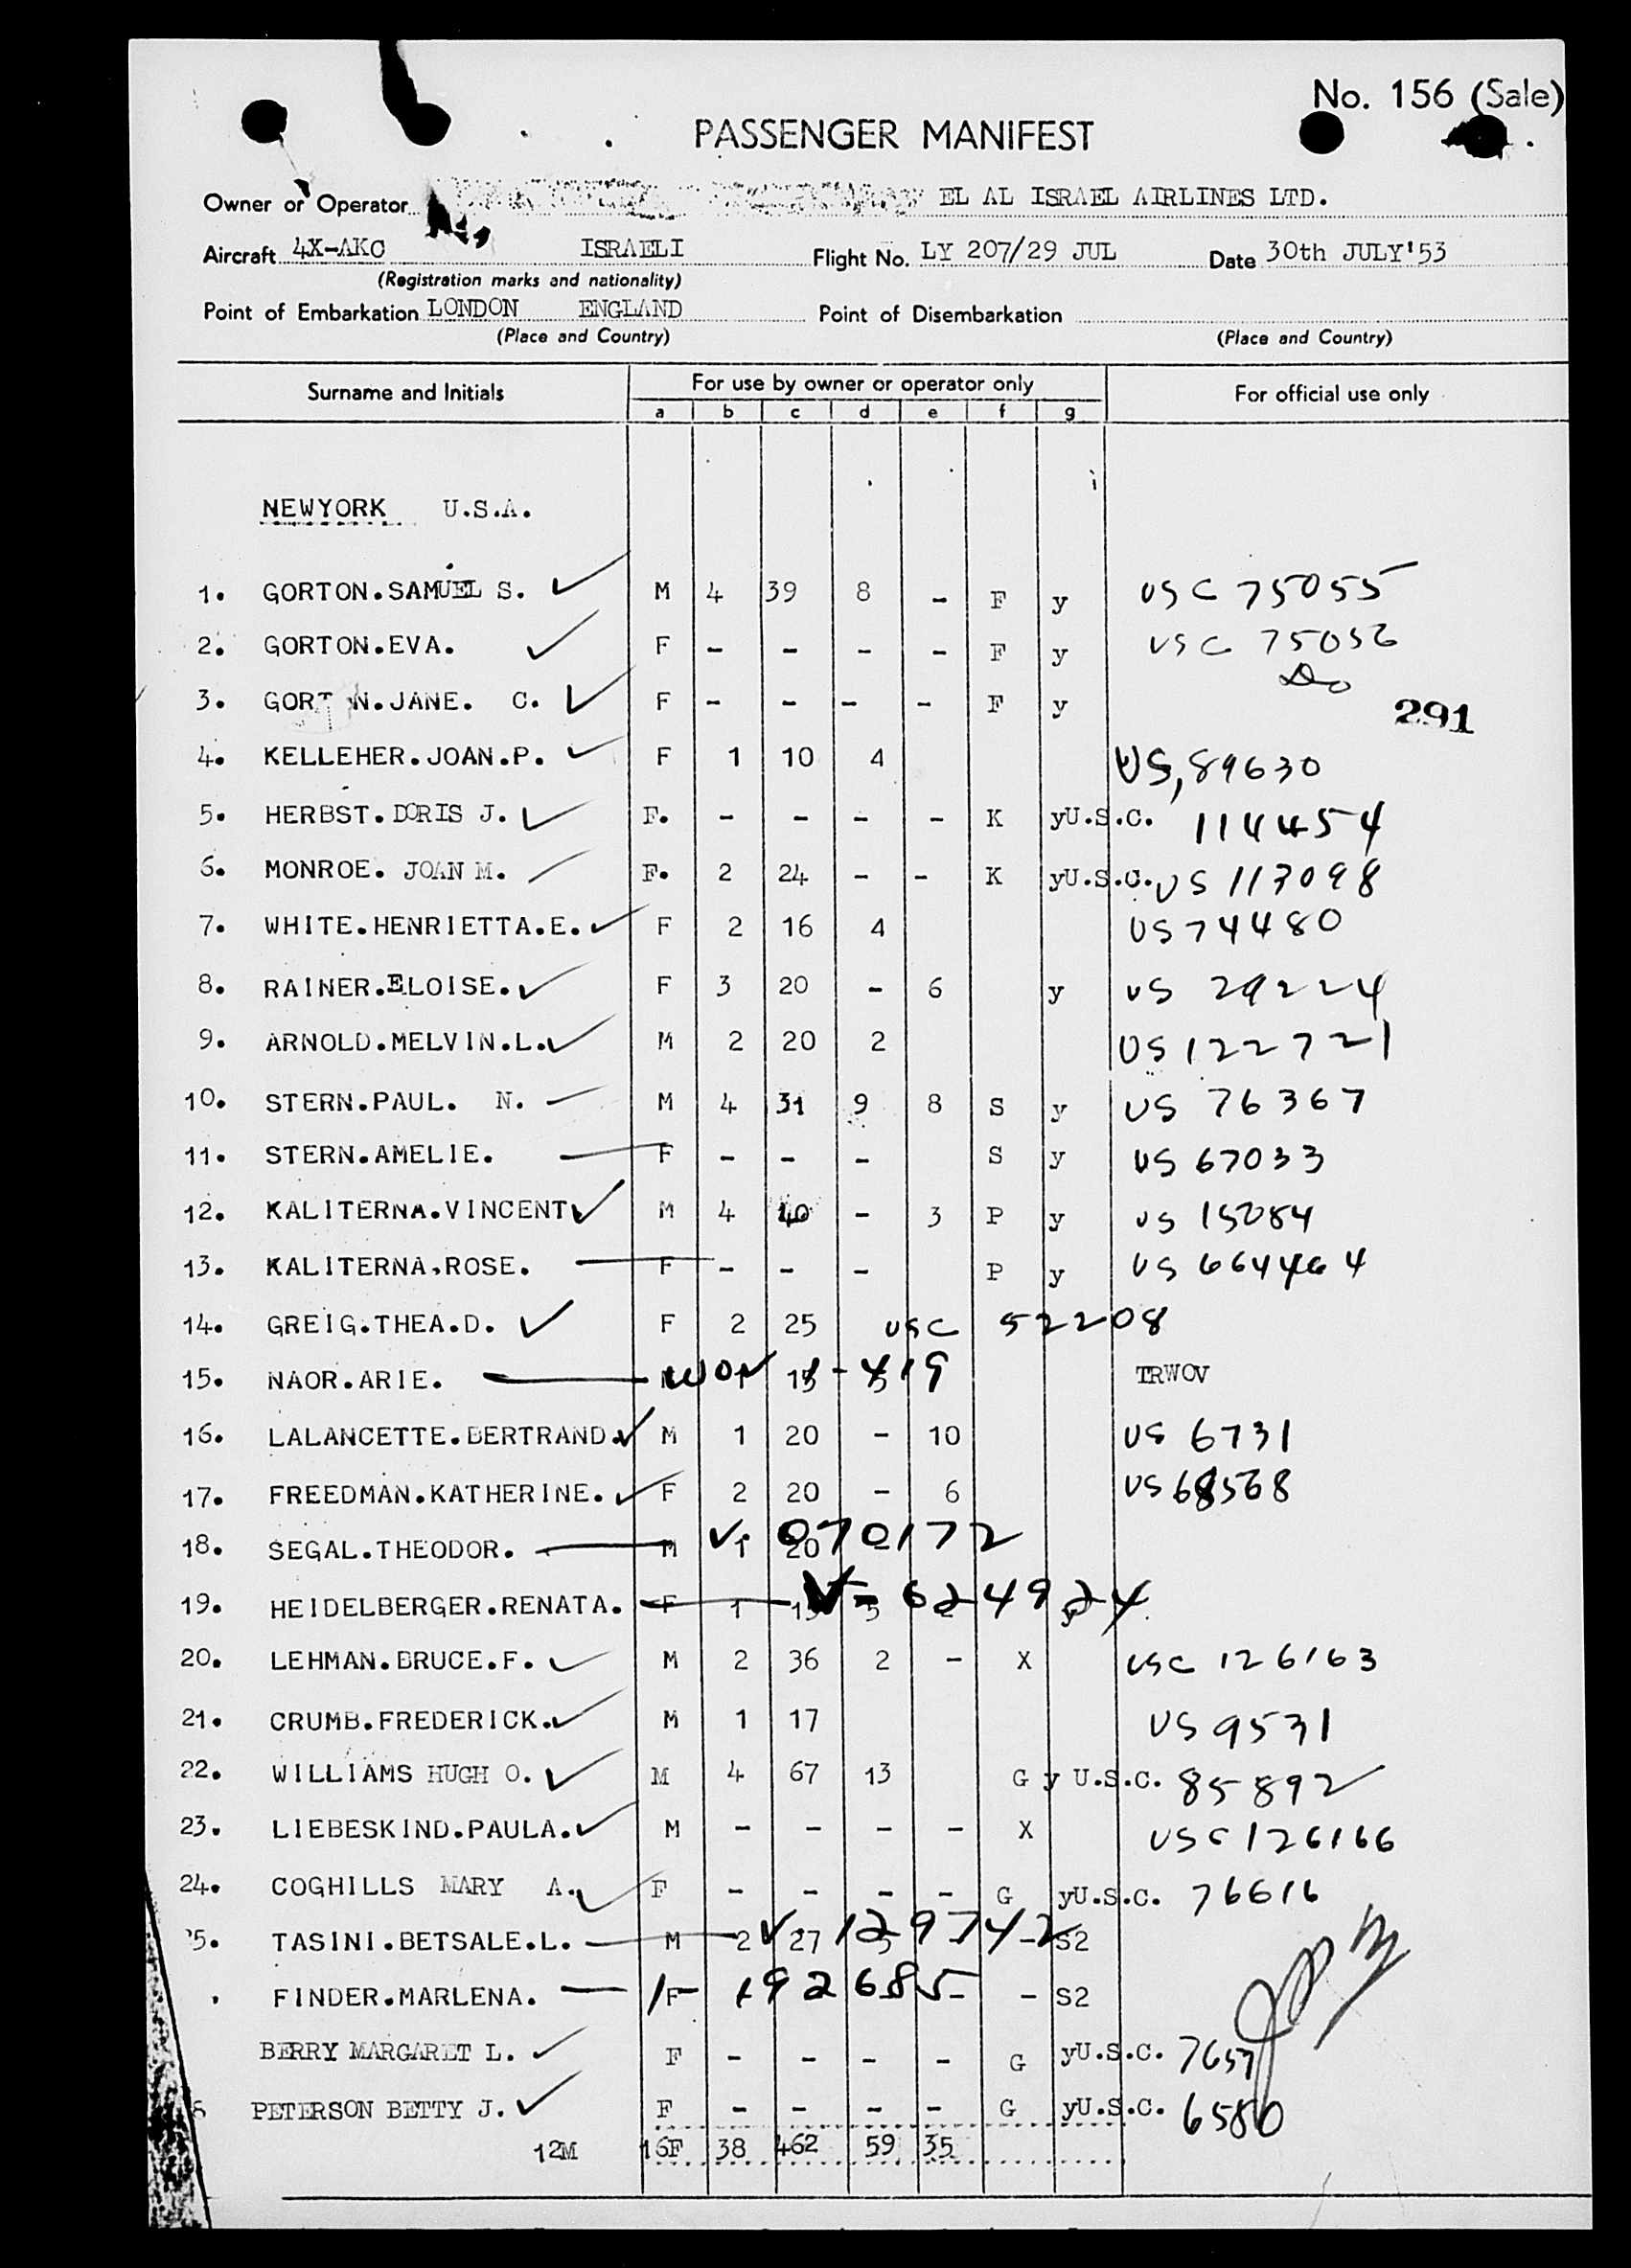 No. 156 (Sale)
PASSENGER MANIFEST
Owner or Operator EL AL ISRAEL AIRLINES LTD.
Aircraft 4X-AKC ISRAELI Flight No. LY 207/29 JUL Date 30th JULY'53
(Registration marks and nationality)
Point of Embarkation LONDON ENGLAND Point of Disembarkation
(Place and Country) (Place and Country)
Surname and Initials For use by owner or operator only For official use only
a b c d e f g
NEWYORK U.S.A.
1. GORTON.SAMUEL S. M 4 39 8 - F y USC 75055
2. GORTON.EVA. F - - - - F y USC 75056
Do
3. GORT N.JANE. C. F - - - - F y
291
4. KELLEHER.JOAN.P. F 1 10 4 US, 89630
5. HERBST.DORIS J. F. - - - - K yU.S.C. 114454
6. MONROE. JOAN M. F. 2 24 - - K yU.S.C. US 113098
7. WHITE.HENRIETTA.E. F 2 16 4 US 74480
8. RAINER.ELOISE. F 3 20 - 6 y US 29224
9. ARNOLD.MELVIN.L. M 2 20 2 US 122721
10. STERN.PAUL. N. M 4 31 9 8 S y US 76367
11. STERN.AMELIE. F - - - S y US 67033
12. KALITERNA.VINCENT M 4 40 - 3 P y US 15084
13. KALITERNA.ROSE. F - - - P y US 664464
14. GREIG.THEA.D. F 2 25 USC 52208
15. NAOR.ARIE. TRWOV
16. LALANCETTE.BERTRAND. M 1 20 - 10 US 6731
17. FREEDMAN.KATHERINE. F 2 20 - 6 US 68568
18. SEGAL.THEODOR. M 1 20 V. 070172
19. HEIDELBERGER.RENATA. F 1 V- 624924
20. LEHMAN.BRUCE.F. M 2 36 2 - X USC 126163
21. CRUMB.FREDERICK. M 1 17 US 9531
22. WILLIAMS HUGH O. M 4 67 13 G y U.S.C. 85892
23. LIEBESKIND.PAULA. M - - - - X USC 126166
24. COGHILLS MARY A. F - - - - G yU.S.C. 76616
25. TASINI.BETSALE.L. M 2 27 V. 129742 - S2
. FINDER.MARLENA. F 192685 - - S2
BERRY MARGARET L. F - - - - G yU.S.C. 7657
8 PETERSON BETTY J. F - - - - G yU.S.C. 6580
12M 16F 38 462 59 35